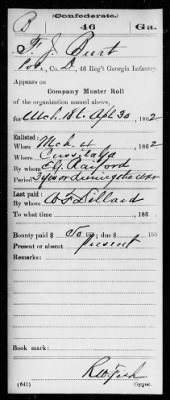 Confederate.
B 46 Ga.
F. J. Burt
Pvt., Co. D, 46 Reg't Georgia Infantry.
Appears on
Company Muster Roll
of the organization named above,
for Mch. 18 to Apl. 30, 1862
Enlisted:
When Mch. 4, 1862
Where
By whom
Period 3 years or during the war
Last paid:
By whom
To what time , 186
Bounty paid $ 50 100; due $ 100
Present or absent Present
Remarks:
Book mark:
(641) Copyist.